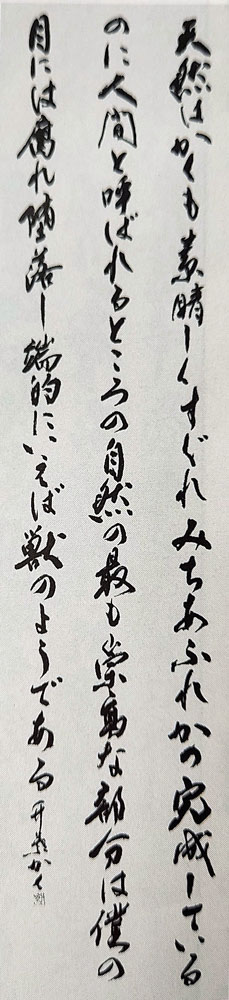 天然はかくも素晴しくすぐれみちあふれかつ完成している
のに人間と呼ばれるところの自然の最も崇高な部分は僕の
目には腐れ堕落し端的にいえば獣のようである